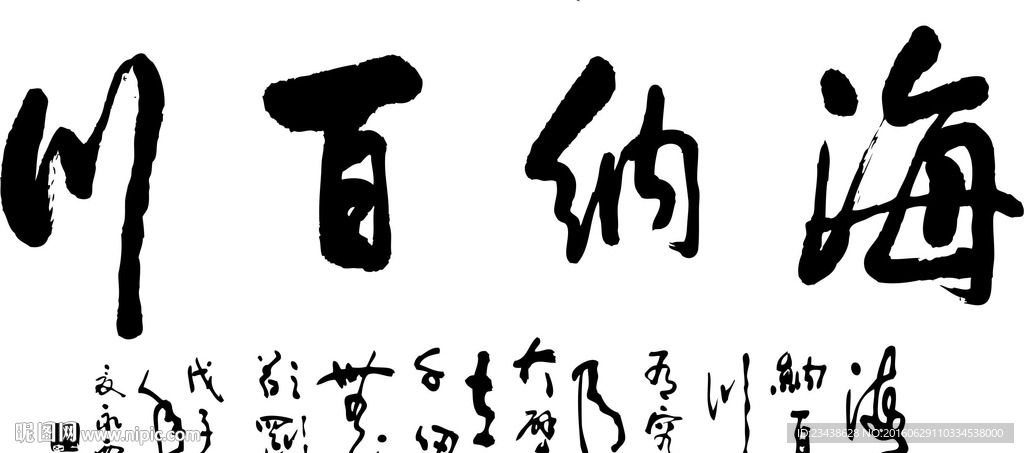 海纳百川
海
纳百
川
有容
乃
大壁
立
千仞
無
欲
戊子
年
昵图网 www.nipic.com
ID:23438628 NO:20160629110334538000